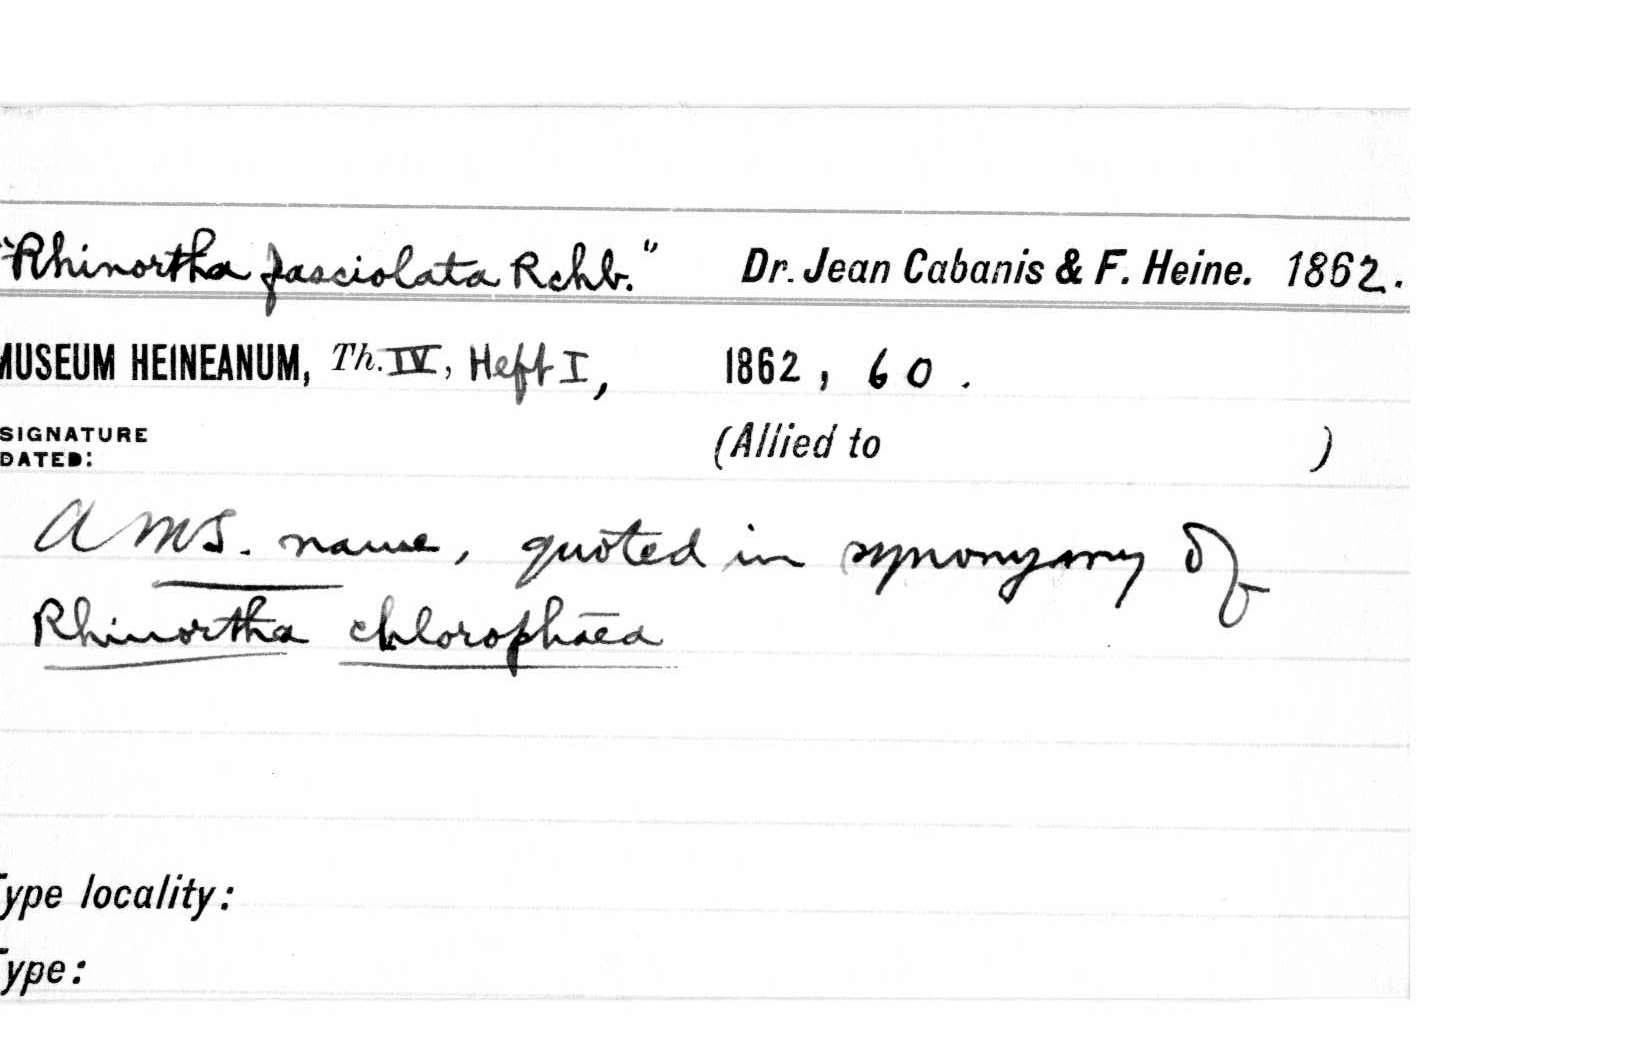 "Rhinortha fasciolata Rchb." Dr. Jean Cabanis & F. Heine. 1862.
MUSEUM HEINEANUM, Th. IV, Heft I, 1862, 60.
SIGNATURE
DATED: (Allied to )
A MS. name, quoted in synonymy of
Rhinortha chlorophāea
Type locality:
Type: